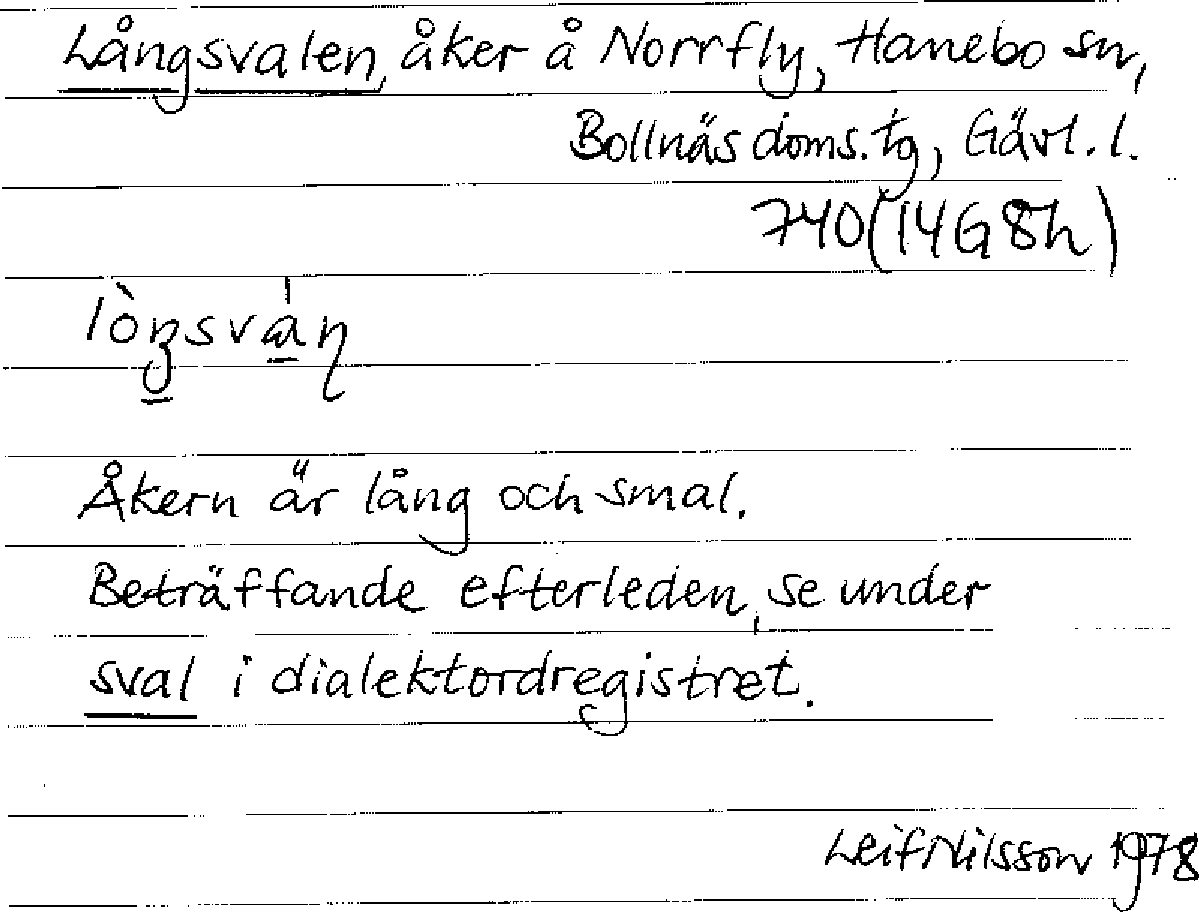 Långsvalen, åker å Norrfly, Hanebo sn,
Bollnäs doms. tg, Gävl. l.
740(14G 8h)
Åkern är lång och smal.
Beträffande efterleden, se under
sval i dialektordregistret.
Leif Nilsson 1978